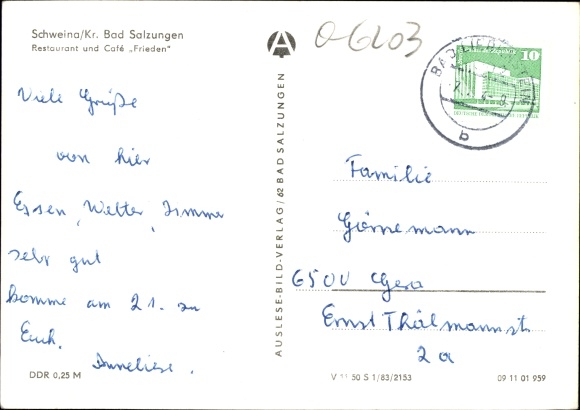 Schweina/Kr. Bad Salzungen
Restaurant und Café „Frieden"
Viele Grüße
von hier
Essen, Wetter, Zimmer
sehr gut
komme am 21. zu
Euch.
Anneliese.
DDR 0,25 M
AUSLESE-BILD-VERLAG / 62 BAD SALZUNGEN
0-6203
BAD LIEBENSTEIN
b
10
Familie
Görnemann
6500 Gera
Ernst Thälmannst
2a
V 11 50 S 1/83/2153
09 11 01 959